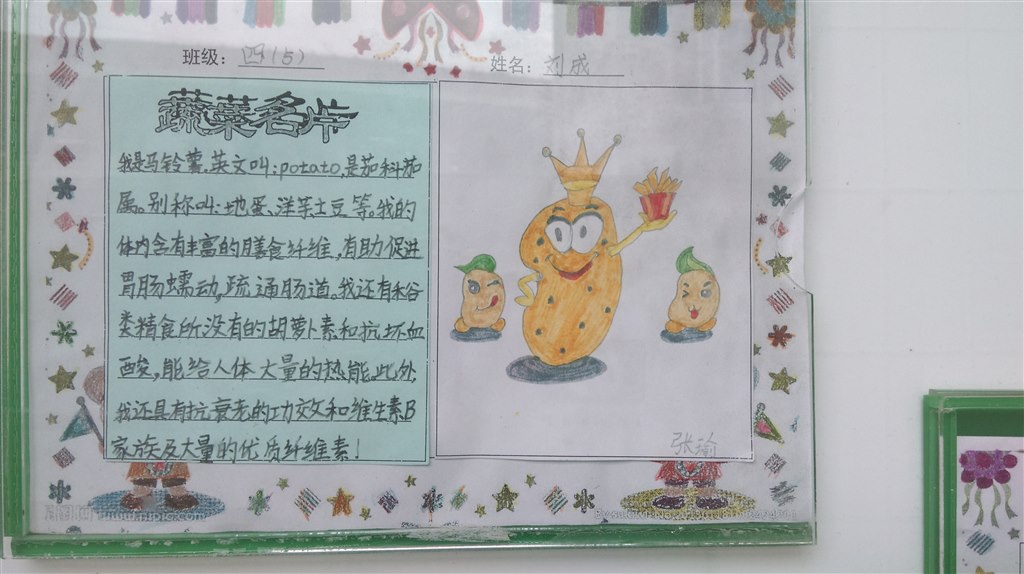 班级：四(5)
姓名：刘成
蔬菜名片
我是马铃薯,英文叫:potato,是茄科茄
属。别称叫:地蛋、洋芋土豆等。我的
体内含有丰富的膳食纤维,有助促进
胃肠蠕动,疏通肠道。我还有禾谷
类精食所没有的胡萝卜素和抗坏血
酸,能给人体大量的热能。此外,
我还具有抗衰老的功效和维生素B
家族及大量的优质纤维素!
张瑜